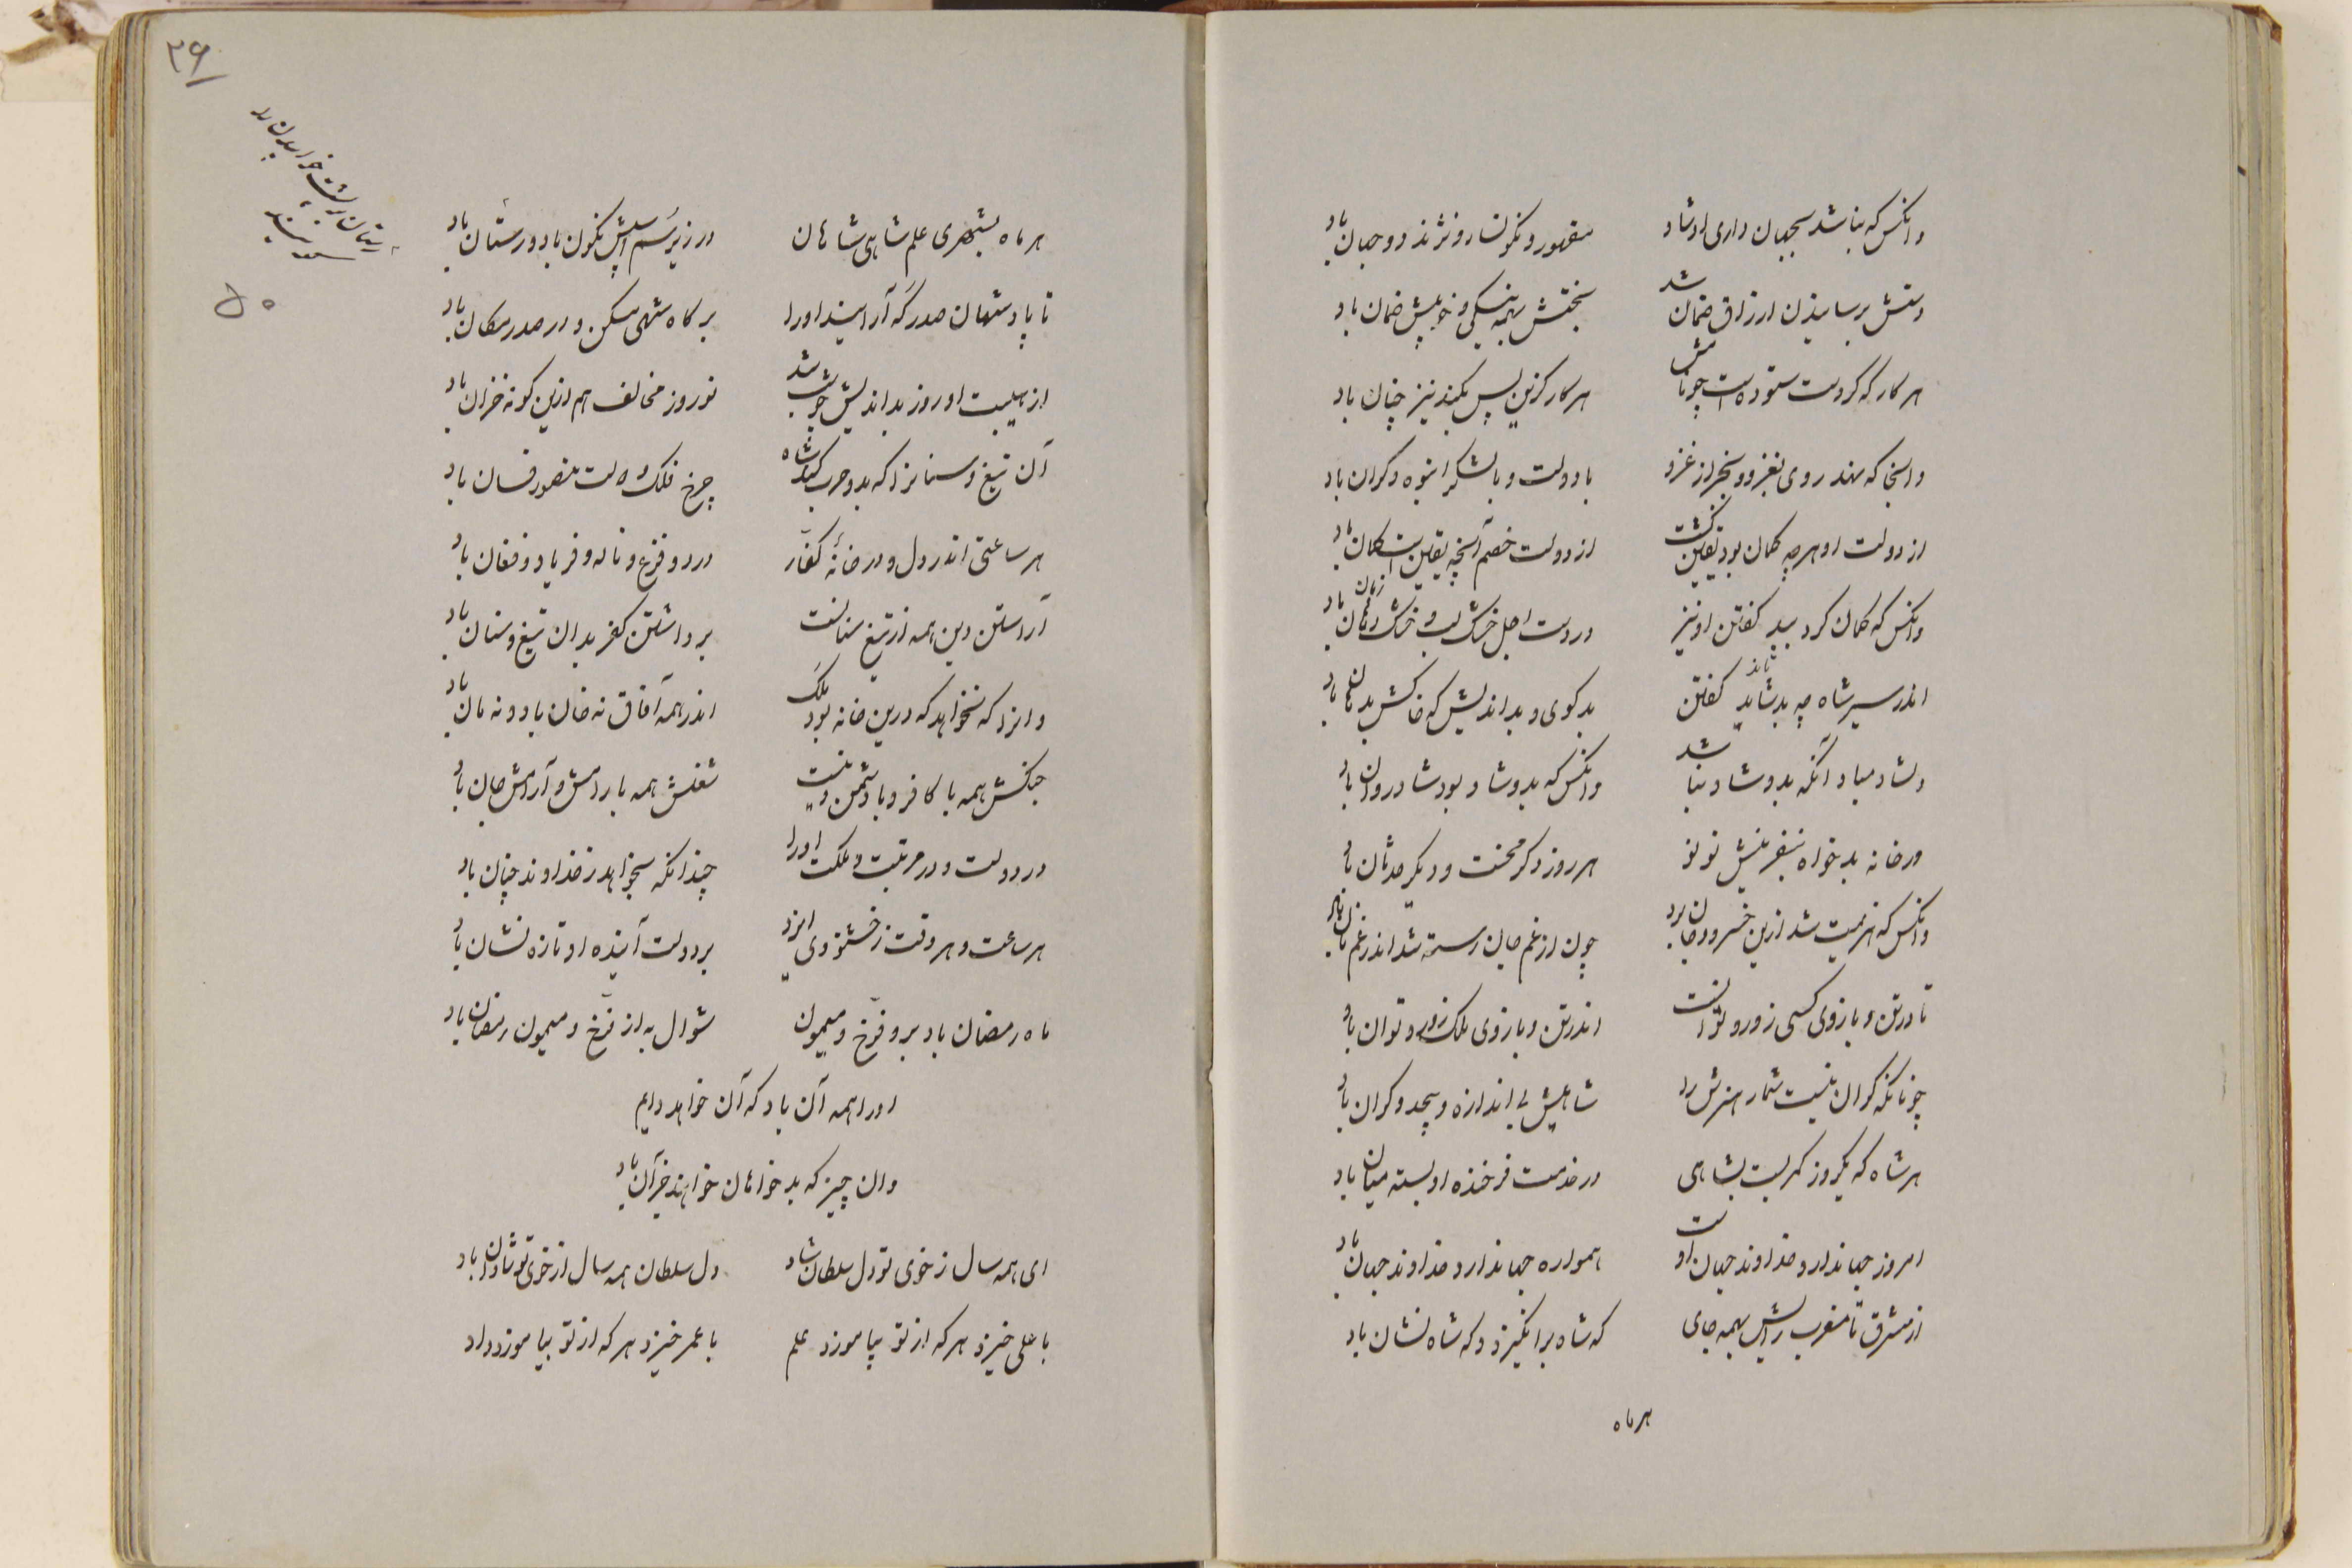 وانکس که نباشد بجهان داری او شاد مقهور و نکونسار و نژند دو جهان باد
دستش برسانیدن ارزاق ضمان شد بختش بهمه نیکی و خوبیش ضمان باد
هر کار که کردست ستوده است چو نامش هر کار کزین پس بکند نیز چنان باد
وانجا که نهد روی بغزو و بجز از غزو با دولت و با لشکر انبوه و کران باد
از دولت او هرچه کمان بود یقین گشت از دولت خصم آنچه یقین است کمان باد
وانکس که کمان کرد ببد کفتن او نیز در دست اجل خشک لب و خشک دهان باد
زبان
اندر سیر شاه چه بد شاید کفتن بدکوی و بداندیش که خاکش بدهان باد
دلشاد مباد آنکه بدو شاد نباشد وانکس که بدو شاد بود شاد روان باد
در خانه بدخواه بنفرینش نو نو هر روز دکر محنت و دیکر حدثان باد
وانکس که هزیمت شد ازین خسرو و جان برد چون از غم جان رسته شد اندر غم نان باد
تا در تن و بازوی کسی زور و توانست اندر تن و بازوی ملک زور و توان باد
چونانکه کران نیست شمار هنرش را شاهیش بی اندازه و بیحد و کران باد
هر شاه که یکروز کمر بست بشاهی در خدمت فرخنده او بسته میان باد
امروز جهاندار و خداوند جهان اوست همواره جهاندار و خداوند جهان باد
از مشرق تا مغرب رایش بهمه جای که شاه برانکیزد و که شاه نشان باد
هر ماه
۲۶
ستان بر پشت خوابیدن را
کویند
۵۰
هر ماه بشهری علم شاهی شاهان در زیر سم اسپش نکون باد و ستان باد
تا پادشهان صدر که آرایند او را بر کاه شهی مسکن و در صدر مکان باد
از هیبت او روز بداندیش چو شب شد نوروز مخالف هم ازین کونه خزان باد
آن تیغ و سنانرا که بدو حرب کند شاه چرخ فلک و دولت منصور فسان باد
هر ساعتی اندر دل و در خانهٔ کفار درد و فزع و ناله و فریاد و فغان باد
آراستن دین همه از تیغ و سنانست برداشتن کفر بدان تیغ و سنان باد
وانرا که نخواهد که درین خانه بود ملک اندر همه آفاق نه خان باد و نه مان باد
جنکش همه با کافر و با دشمن دینست شغلش همه با رامش و آرامش جان باد
در دولت و در مرتبت و مملکت او را چندانکه بخواهد ز خداوند چنان باد
هر ساعت و هر وقت ز خشنودی ایزد بر دولت آینده او تازه نشان باد
ماه رمضان باد برو فرخ و میمون شوال به از فرخ و میمون رمضان باد
او را همه آن باد که آن خواهد دایم
وان چیز که بدخواهان خواهند جز آن باد
ای همه سال ز خوی تو دل سلطان شاد دل سلطان همه سال از خوی تو شادان باد
با علی خیزد هر که از تو بیاموزد علم با عمر خیزد هر که از تو بیاموزد داد